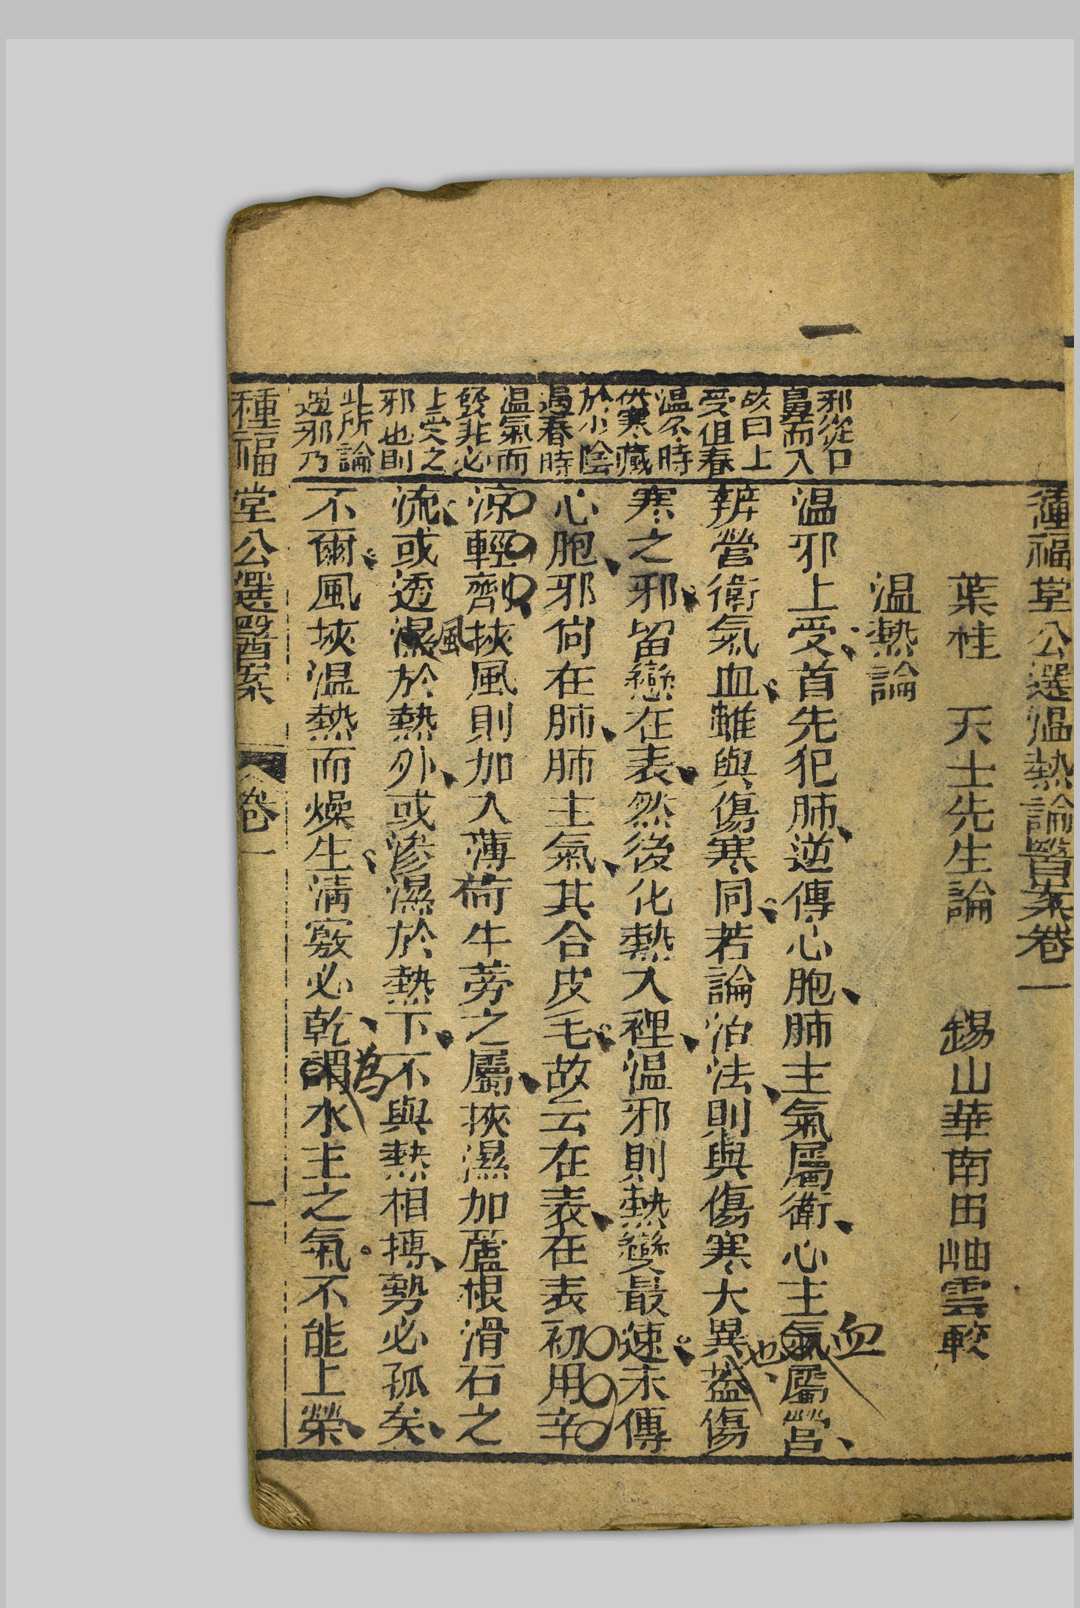 一
種福堂公選温熱論醫案卷一
葉桂 天士先生論 錫山華南田岫雲較
温熱論
邪從口
鼻而入
故曰上
受但春
温冬時
伏寒藏
於少陰
遇春時
温氣而
發非必
上受之
邪也則
此所論
温邪乃
温邪上受首先犯肺逆傳心胞肺主氣屬衛心主氣屬營
血
辨營衛氣血雖與傷寒同若論治法則與傷寒大異葢傷
也
寒之邪留戀在表然後化熱入裡温邪則熱變最速未傳
心胞邪尙在肺肺主氣其合皮毛故云在表在表初用辛
涼輕劑挾風則加入薄荷牛蒡之屬挾濕加蘆根滑石之
流或透濕於熱外或滲濕於熱下不與熱相摶勢必孤矣
風
不爾風挾温熱而燥生淸竅必乾謂水主之氣不能上榮
為
種福堂公選醫案 卷一 一